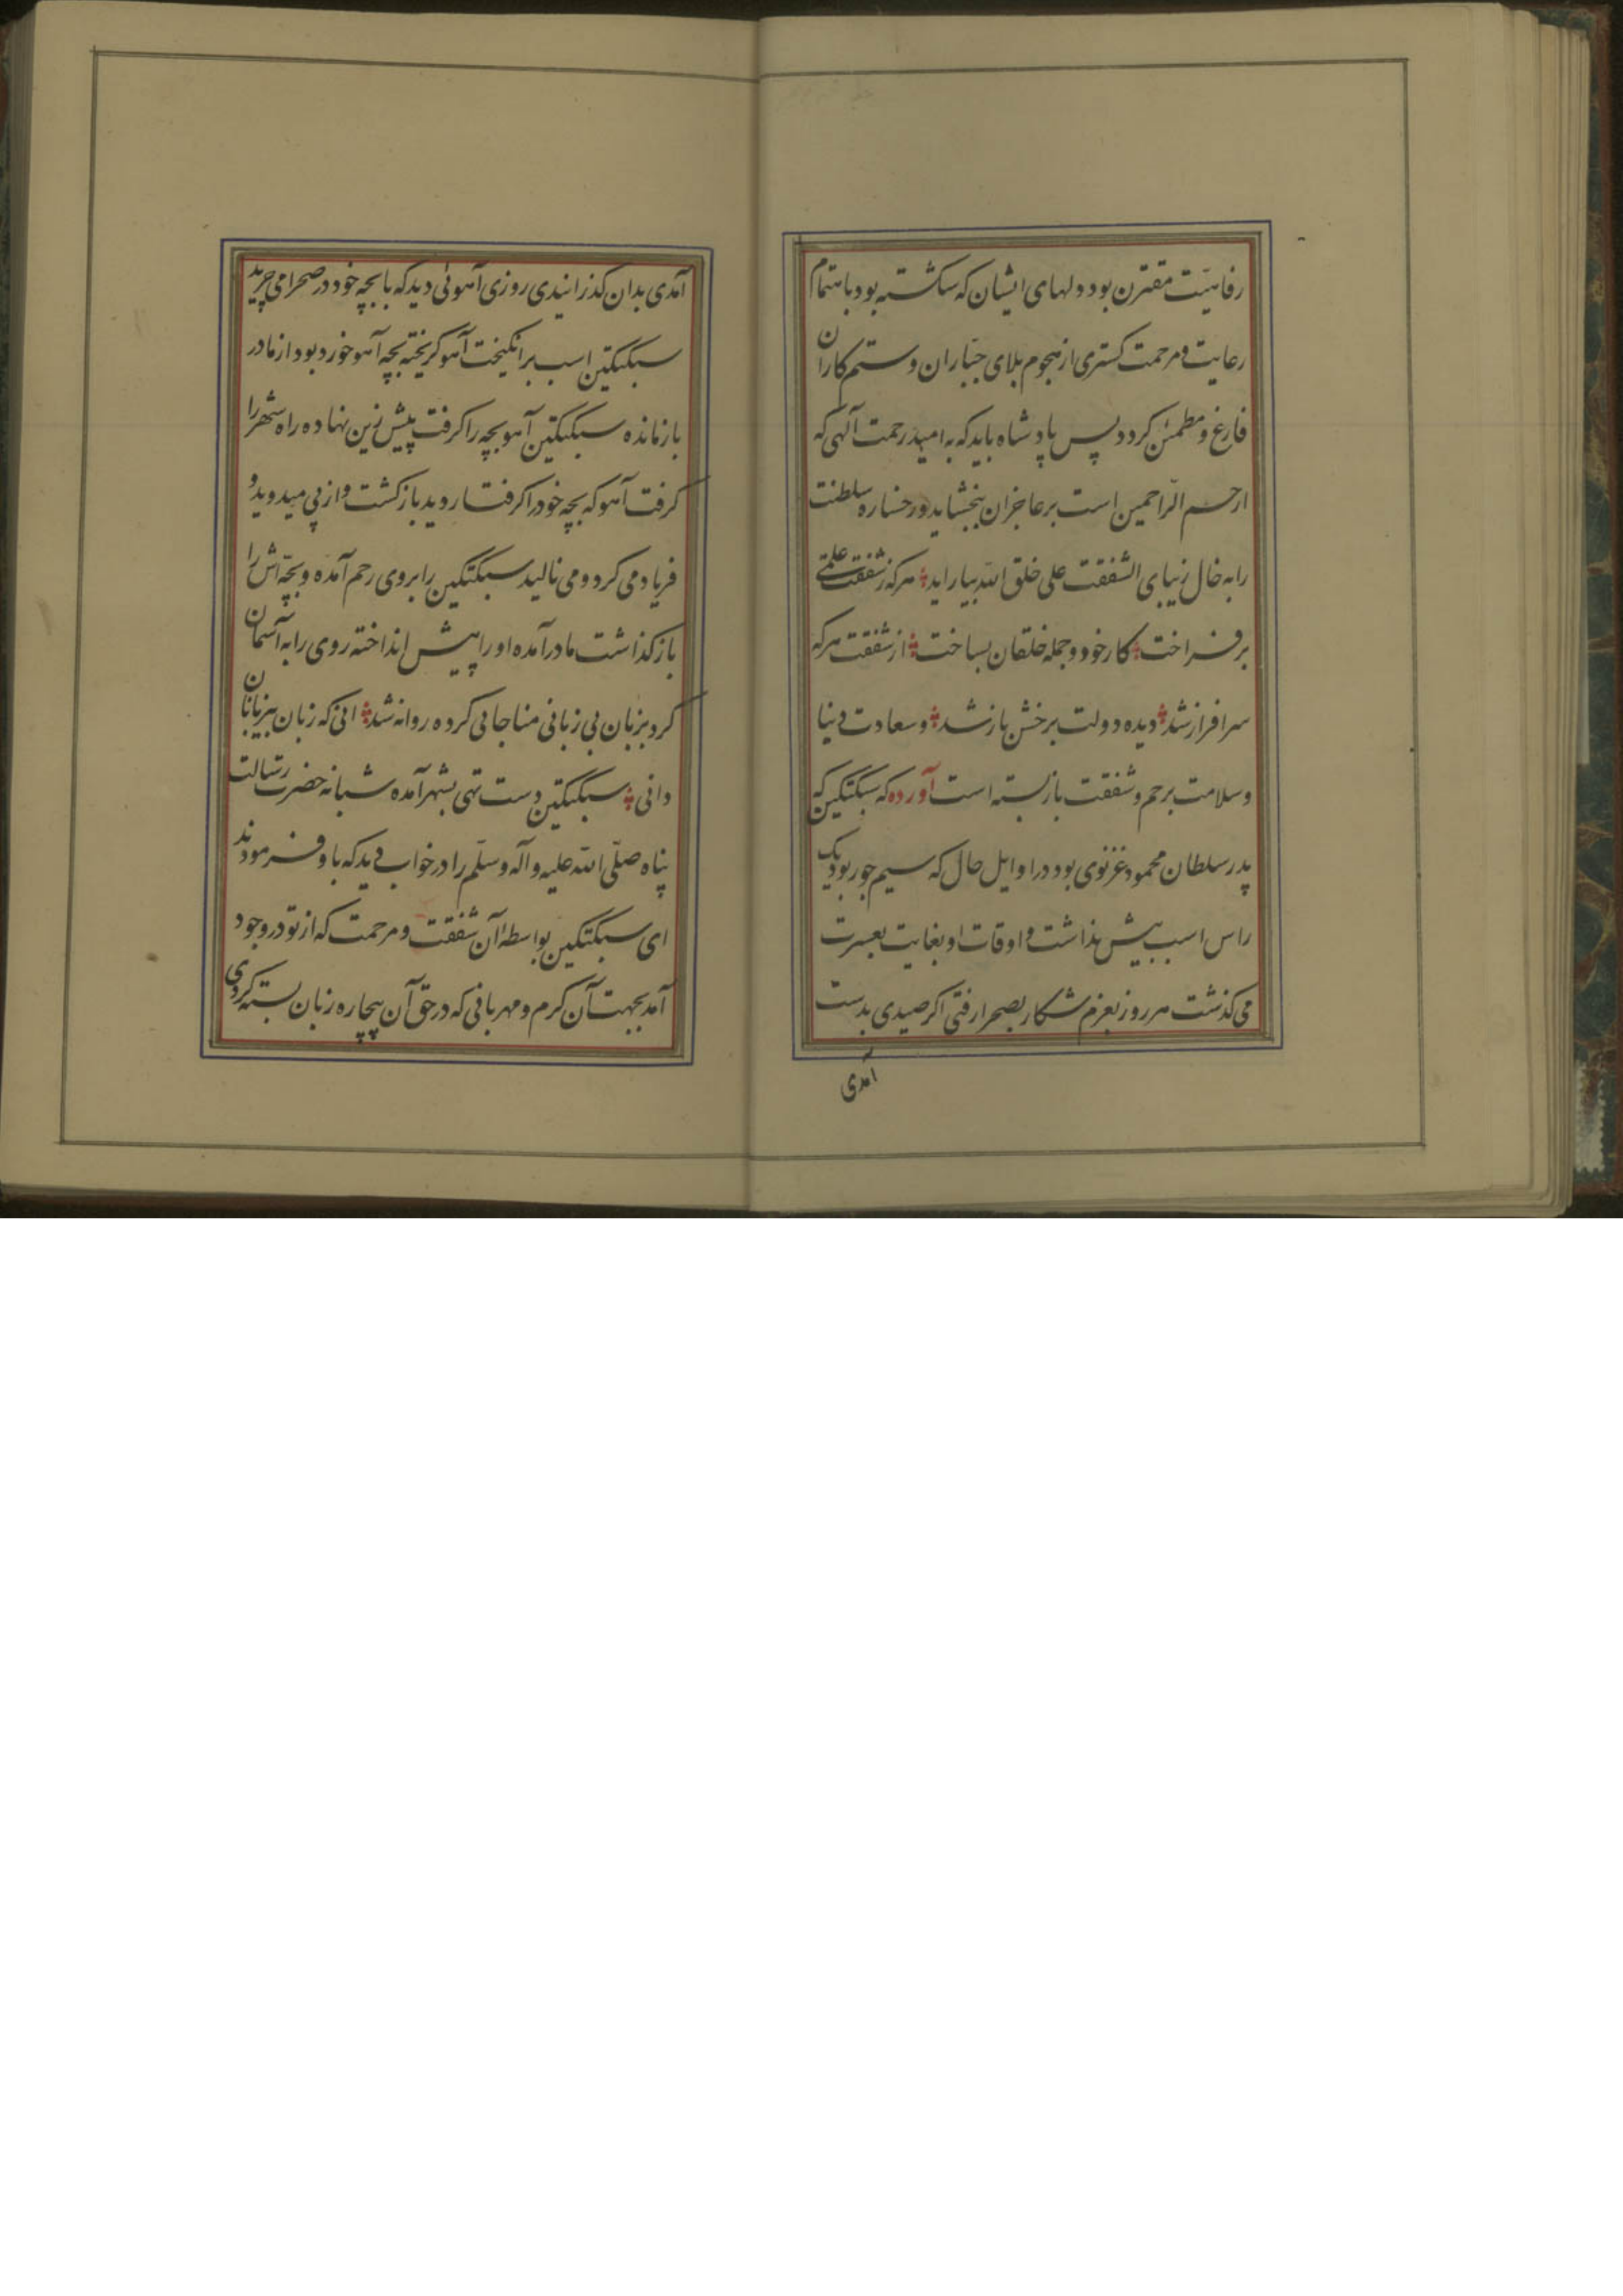 رفاهیت مقترن بود و دلهای ایشان که شکسته بود باهتمام
رعایت و مرحمت کستری از هجوم بلای جباران و ستم کاران
فارغ و مطمئن کردد پس پادشاه باید که به امید رحمت آلهی که
ارحم الراحمین است بر عاجزان ببخشاید و رخساره سلطنت
را به خال زیبای الشفقت علی خلق الله بیاراید هر که ز شفقت علمی
بر فراخت کار خود و جمله خلقان بساخت از شفقت هر که
سرافراز شد دیده دولت برخش باز شد و سعادت دنیا
و سلامت برحم و شفقت باز بسته است آورده که سبکتکین که
پدر سلطان محمود غزنوی بود در اوایل حال که سیم جور بود یک
راس اسب بیش نداشت و اوقات او بغایت بعسرت
می کذشت هر روز بعزم شکار بصحرا رفتی اکر صیدی بدست
آمدی
آمدی بدان کذرانیدی روزی آهوئی دید که با بچه خود در صحرا می چرید
سبکتکین اسب بر انکیخت آهو کریخته بچه آهو خورد بود از مادر
بازمانده سبکتکین آهو بچه را کرفت پیش زین نهاده راه شهر را
کرفت آهو که بچه خود را کرفتار دید بازکشت و از پی میدوید و
فریاد می کرد و می نالید سبکتکین را بروی رحم آمده و بچه اش را
باز کذاشت مادر آمده او را پیش انداخته روی را به آسمان
کرد بزبان بی زبانی مناجاتی کرده روانه شد انی که زبان بیزبانان
دانی سبکتکین دست تهی بشهر آمده شبانه حضرت رسالت
پناه صلی الله علیه و آله و سلم را در خواب دید که با و فرمودند
ای سبکتکین بواسطه آن شفقت و مرحمت که از تو در وجود
آمد بجهت آن کرم و مهربانی که در حق آن بیچاره زبان بسته کردی